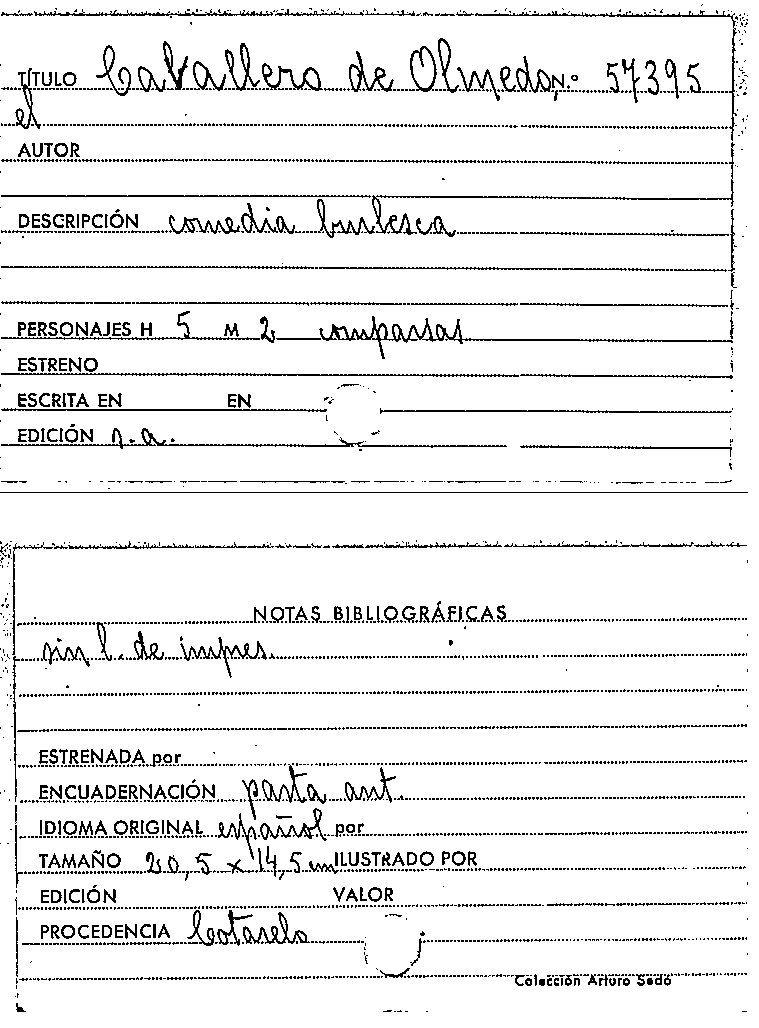 TÍTULO Cavallero de Olmedo, N.º 57395
el
AUTOR
DESCRIPCIÓN comedia burlesca
PERSONAJES H 5 M 2 comparsas
ESTRENO
ESCRITA EN EN
EDICIÓN s.a.
NOTAS BIBLIOGRÁFICAS
sin l. de impres.
ESTRENADA por
ENCUADERNACIÓN pasta ant.
IDIOMA ORIGINAL español por
TAMAÑO 20,5 x 14,5 cm ILUSTRADO POR
EDICIÓN VALOR
PROCEDENCIA Cotarelo
Colección Arturo Sedó